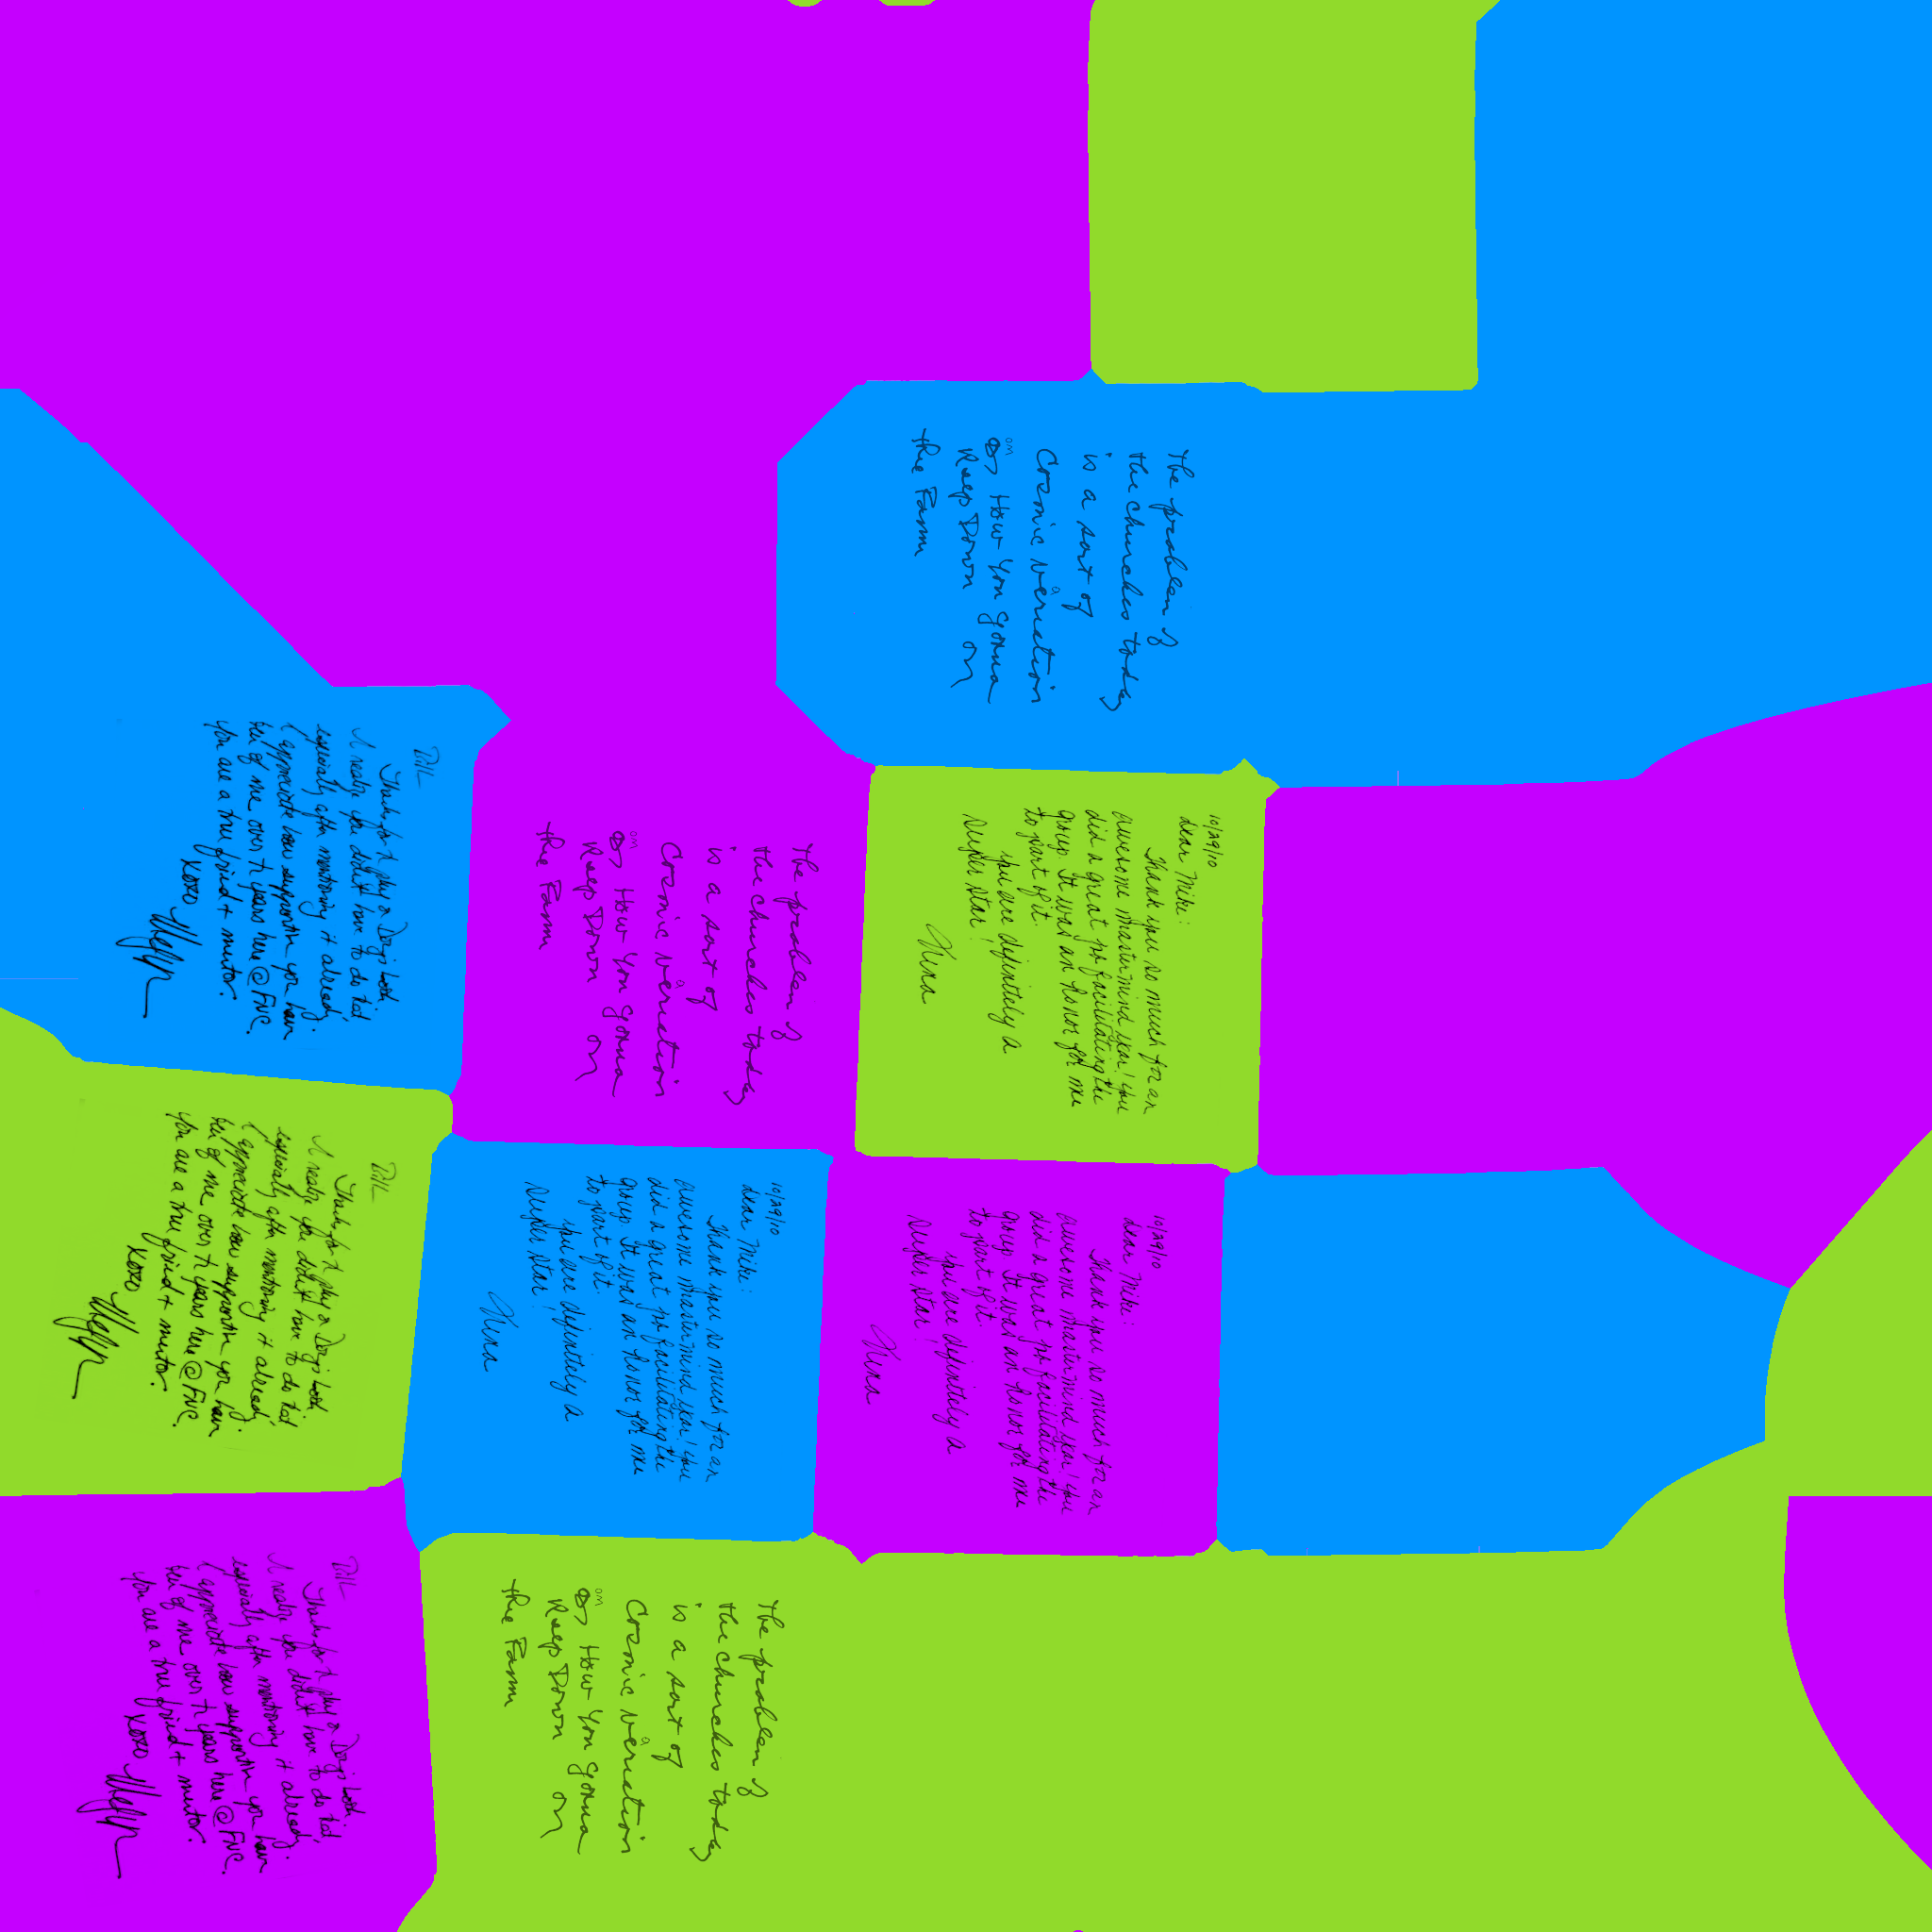 The problem of
the churches today
is a sort of
Cosmic variation
on How you gonna
Keep Down on
the Farm
Bill
Thanks for
I realize you didn't have to do that
especially after mentioning it already.
I appreciate how supportive you have
been of me over the years here @ FNC.
You are a true friend + mentor.
xoxo
The problem of
the churches today
is a sort of
Cosmic variation
on How you gonna
Keep Down on
the Farm
10/29/10
Dear Mike:
Thank you so much for an
awesome mastermind year! You
did a great job facilitating the
group. It was an honor for me
to part of it.
You are definitely a
Super Star!
Nina
Bill
Thanks for
I realize you didn't have to do that
especially after mentioning it already.
I appreciate how supportive you have
been of me over the years here @ FNC.
You are a true friend + mentor.
xoxo
10/29/10
Dear Mike:
Thank you so much for an
awesome mastermind year! You
did a great job facilitating the
group. It was an honor for me
to part of it.
You are definitely a
Super Star!
Nina
10/29/10
Dear Mike:
Thank you so much for an
awesome mastermind year! You
did a great job facilitating the
group. It was an honor for me
to part of it.
You are definitely a
Super Star!
Nina
Bill
Thanks for
I realize you didn't have to do that
especially after mentioning it already.
I appreciate how supportive you have
been of me over the years here @ FNC.
You are a true friend + mentor.
xoxo
The problem of
the churches today
is a sort of
Cosmic variation
on How you gonna
Keep Down on
the Farm